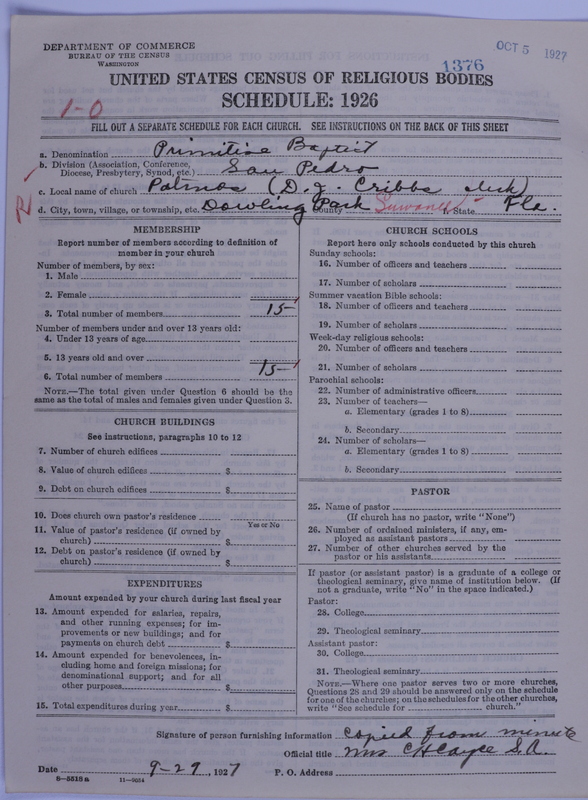 DEPARTMENT OF COMMERCE
BUREAU OF THE CENSUS
WASHINGTON
OCT 5 1927
1376
UNITED STATES CENSUS OF RELIGIOUS BODIES
SCHEDULE: 1926
1-0
FILL OUT A SEPARATE SCHEDULE FOR EACH CHURCH. SEE INSTRUCTIONS ON THE BACK OF THIS SHEET
a. Denomination Primitive Baptist
b. Division (Association, Conference, Diocese, Presbytery, Synod, etc.) San Pedro
c. Local name of church Patmos (D. J. Cribbs clerk)
R
d. City, town, village, or township, etc. Dowling Park County Suwanee State Fla.
MEMBERSHIP
Report number of members according to definition of
member in your church
Number of members, by sex:
1. Male
2. Female
3. Total number of members 15
Number of members under and over 13 years old:
4. Under 13 years of age
5. 13 years old and over
6. Total number of members 15
NOTE.—The total given under Question 6 should be the
same as the total of males and females given under Question 3.
CHURCH BUILDINGS
See instructions, paragraphs 10 to 12
7. Number of church edifices
8. Value of church edifices $
9. Debt on church edifices $
10. Does church own pastor's residence
Yes or No
11. Value of pastor's residence (if owned by
church) $
12. Debt on pastor's residence (if owned by
church) $
EXPENDITURES
Amount expended by your church during last fiscal year
13. Amount expended for salaries, repairs,
and other running expenses; for im-
provements or new buildings; and for
payments on church debt $
14. Amount expended for benevolences, in-
cluding home and foreign missions; for
denominational support; and for all
other purposes $
15. Total expenditures during year $
CHURCH SCHOOLS
Report here only schools conducted by this church
Sunday schools:
16. Number of officers and teachers
17. Number of scholars
Summer vacation Bible schools:
18. Number of officers and teachers
19. Number of scholars
Week-day religious schools:
20. Number of officers and teachers
21. Number of scholars
Parochial schools:
22. Number of administrative officers
23. Number of teachers—
a. Elementary (grades 1 to 8)
b. Secondary
24. Number of scholars—
a. Elementary (grades 1 to 8)
b. Secondary
PASTOR
25. Name of pastor
(If church has no pastor, write "None")
26. Number of ordained ministers, if any, em-
ployed as assistant pastors
27. Number of other churches served by the
pastor or his assistants
If pastor (or assistant pastor) is a graduate of a college or
theological seminary, give name of institution below. (If
not a graduate, write "No" in the space indicated.)
Pastor:
28. College
29. Theological seminary
Assistant pastor:
30. College
31. Theological seminary
NOTE.—Where one pastor serves two or more churches,
Questions 28 and 29 should be answered only on the schedule
for one of the churches; on the schedules for the other churches,
write "See schedule for church."
Signature of person furnishing information Copied from minute
Official title Mrs C H Cayce S. A.
Date 9-29, 1927 P. O. Address
8-5518a 11-9014